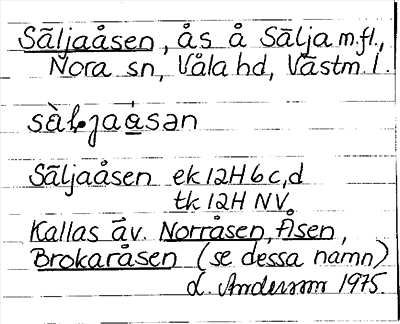 Säljaåsen, ås å Sälja m.fl.,
Nora sn, Våla hd, Västm. l.
sàl.jaásən
Säljaåsen ek 12H 6c,d
tk 12H NV
Kallas äv. Norråsen, Åsen,
Brokaråsen (se dessa namn)
L. Andersson 1975.